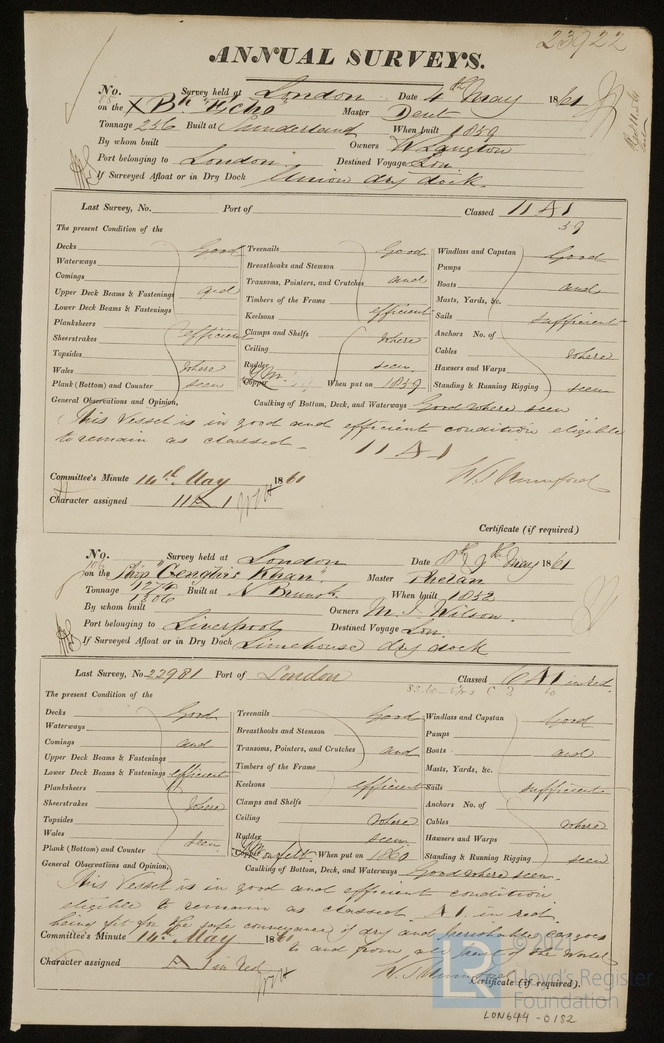 23922
ANNUAL SURVEYS.
No. Survey held at London Date 4th May 1861
on the Bk "Echo Master Dent
Tonnage 256 Built at Sunderland When built 1859
By whom built Owners W Langton
Port belonging to London Destined Voyage Lon
If Surveyed Afloat or in Dry Dock Union dry dock.
Last Survey, No. Port of Classed 11 A 1
59
The present Condition of the
Decks Good Treenails Good Windlass and Capstan Good
Waterways Breasthooks and Stemson Pumps
Comings and Transoms, Pointers, and Crutches and Boats and
Upper Deck Beams & Fastenings Timbers of the Frame Masts, Yards, &c.
Lower Deck Beams & Fastenings Keelsons efficient Sails sufficient
Planksheers efficient Clamps and Shelfs where Anchors No. of
Sheerstrakes Ceiling Cables where
Topsides Rudder seen Hawsers and Warps
Wales where Copper When put on 1859 Standing & Running Rigging seen
Plank (Bottom) and Counter seen
General Observations and Opinion, Caulking of Bottom, Deck, and Waterways Good where seen
This Vessel is in good and efficient condition eligible
to remain as classed - 11 A 1
Committee's Minute 14th May 1861
Character assigned 11 A 1
Certificate (if required)
No. Survey held at London Date 8th 9th May 1861
on the Ship "Genghis Khan. Master Phelan
Tonnage 1274 1306 Built at N Brunsk. When built 1852
By whom built Owners M. I. Wilson.
Port belonging to Liverpool Destined Voyage Lon.
If Surveyed Afloat or in Dry Dock Limehouse dry dock
Last Survey, No. 22981 Port of London Classed 6 A 1 in red.
The present Condition of the
Decks Good Treenails Good Windlass and Capstan Good
Waterways Breasthooks and Stemson Pumps
Comings and Transoms, Pointers, and Crutches and Boats and
Upper Deck Beams & Fastenings Timbers of the Frame Masts, Yards, &c.
Lower Deck Beams & Fastenings efficient Keelsons efficient Sails sufficient
Planksheers Clamps and Shelfs Anchors No. of
Sheerstrakes where Ceiling where Cables where
Topsides Rudder seen Hawsers and Warps
Wales seen When put on 1860 Standing & Running Rigging seen
Plank (Bottom) and Counter
General Observations and Opinion, Caulking of Bottom, Deck, and Waterways Good where seen.
This Vessel is in good and efficient condition
eligible to remain as classed A 1. in red.
being fit for the safe conveyance of dry and perishable cargoes
to and from all parts of the World
Committee's Minute 14th May 1861
Character assigned A 1 in Red
Certificate (if required).
© 2021
LR Lloyd's Register
Foundation
LON644-0182